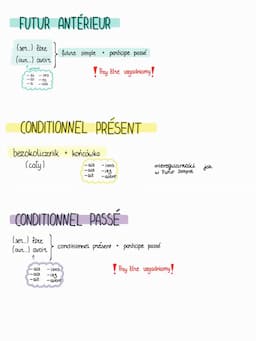 FUTUR ANTÉRIEUR
(ser...) être
(aur...) avoir
futur simple + participe passé
-ai -ons
-as -ez
-a -ont
! Przy être uzgadniamy!
CONDITIONNEL PRÉSENT
bezokolicznik + końcówka
(cały)
-ais -ions
-ais -iez
-ait -aient
nieregularności jak
w Futur Simple
CONDITIONNEL PASSÉ
(ser...) être
(aur...) avoir
conditionnel présent + participe passé
-ais -ions
-ais -iez
-ait -aient
! Przy être uzgadniamy!